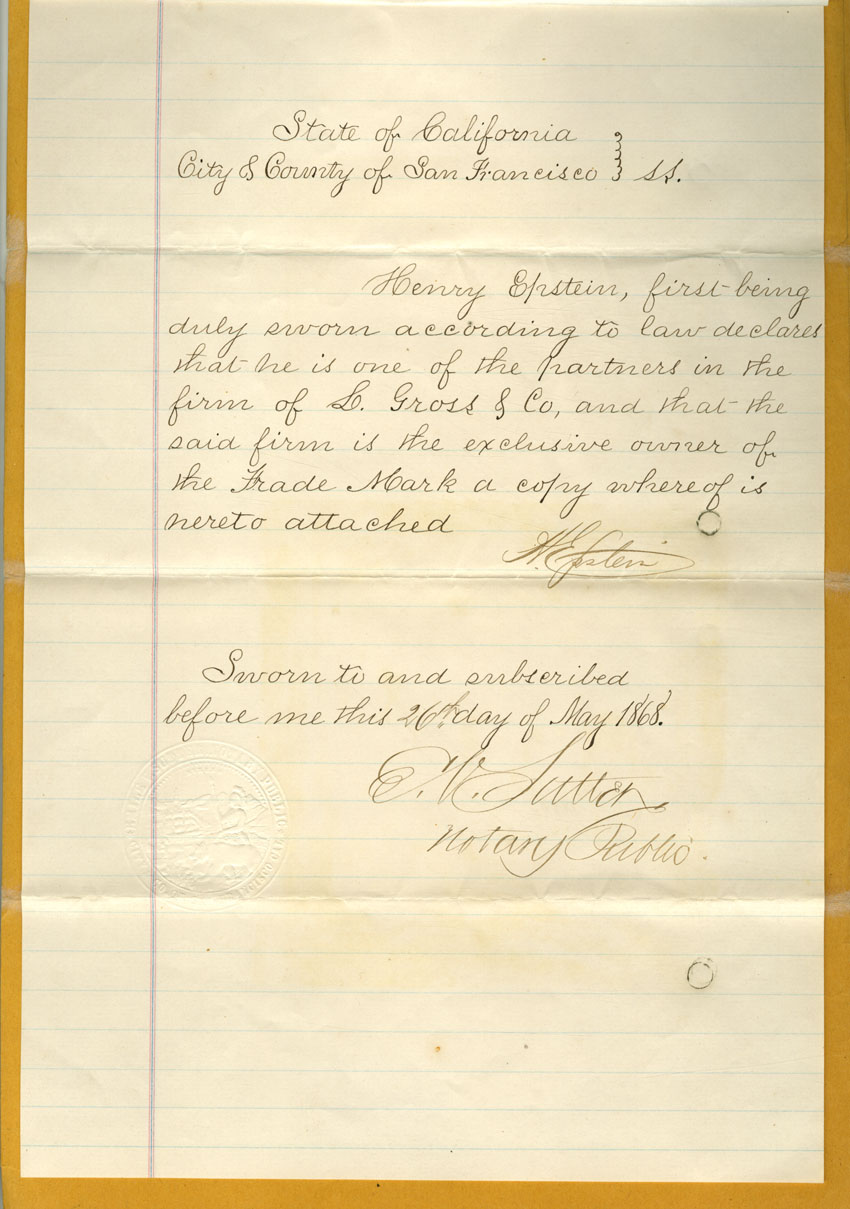 State of California
City & County of San Francisco } SS.
Henry Epstein, first being
duly sworn according to law declares
that he is one of the partners in the
firm of L. Gross & Co, and that the
said firm is the exclusive owner of
the Trade Mark a copy whereof is
hereto attached
H. Epstein
Sworn to and subscribed
before me this 26th day of May 1868.
Notary Public.